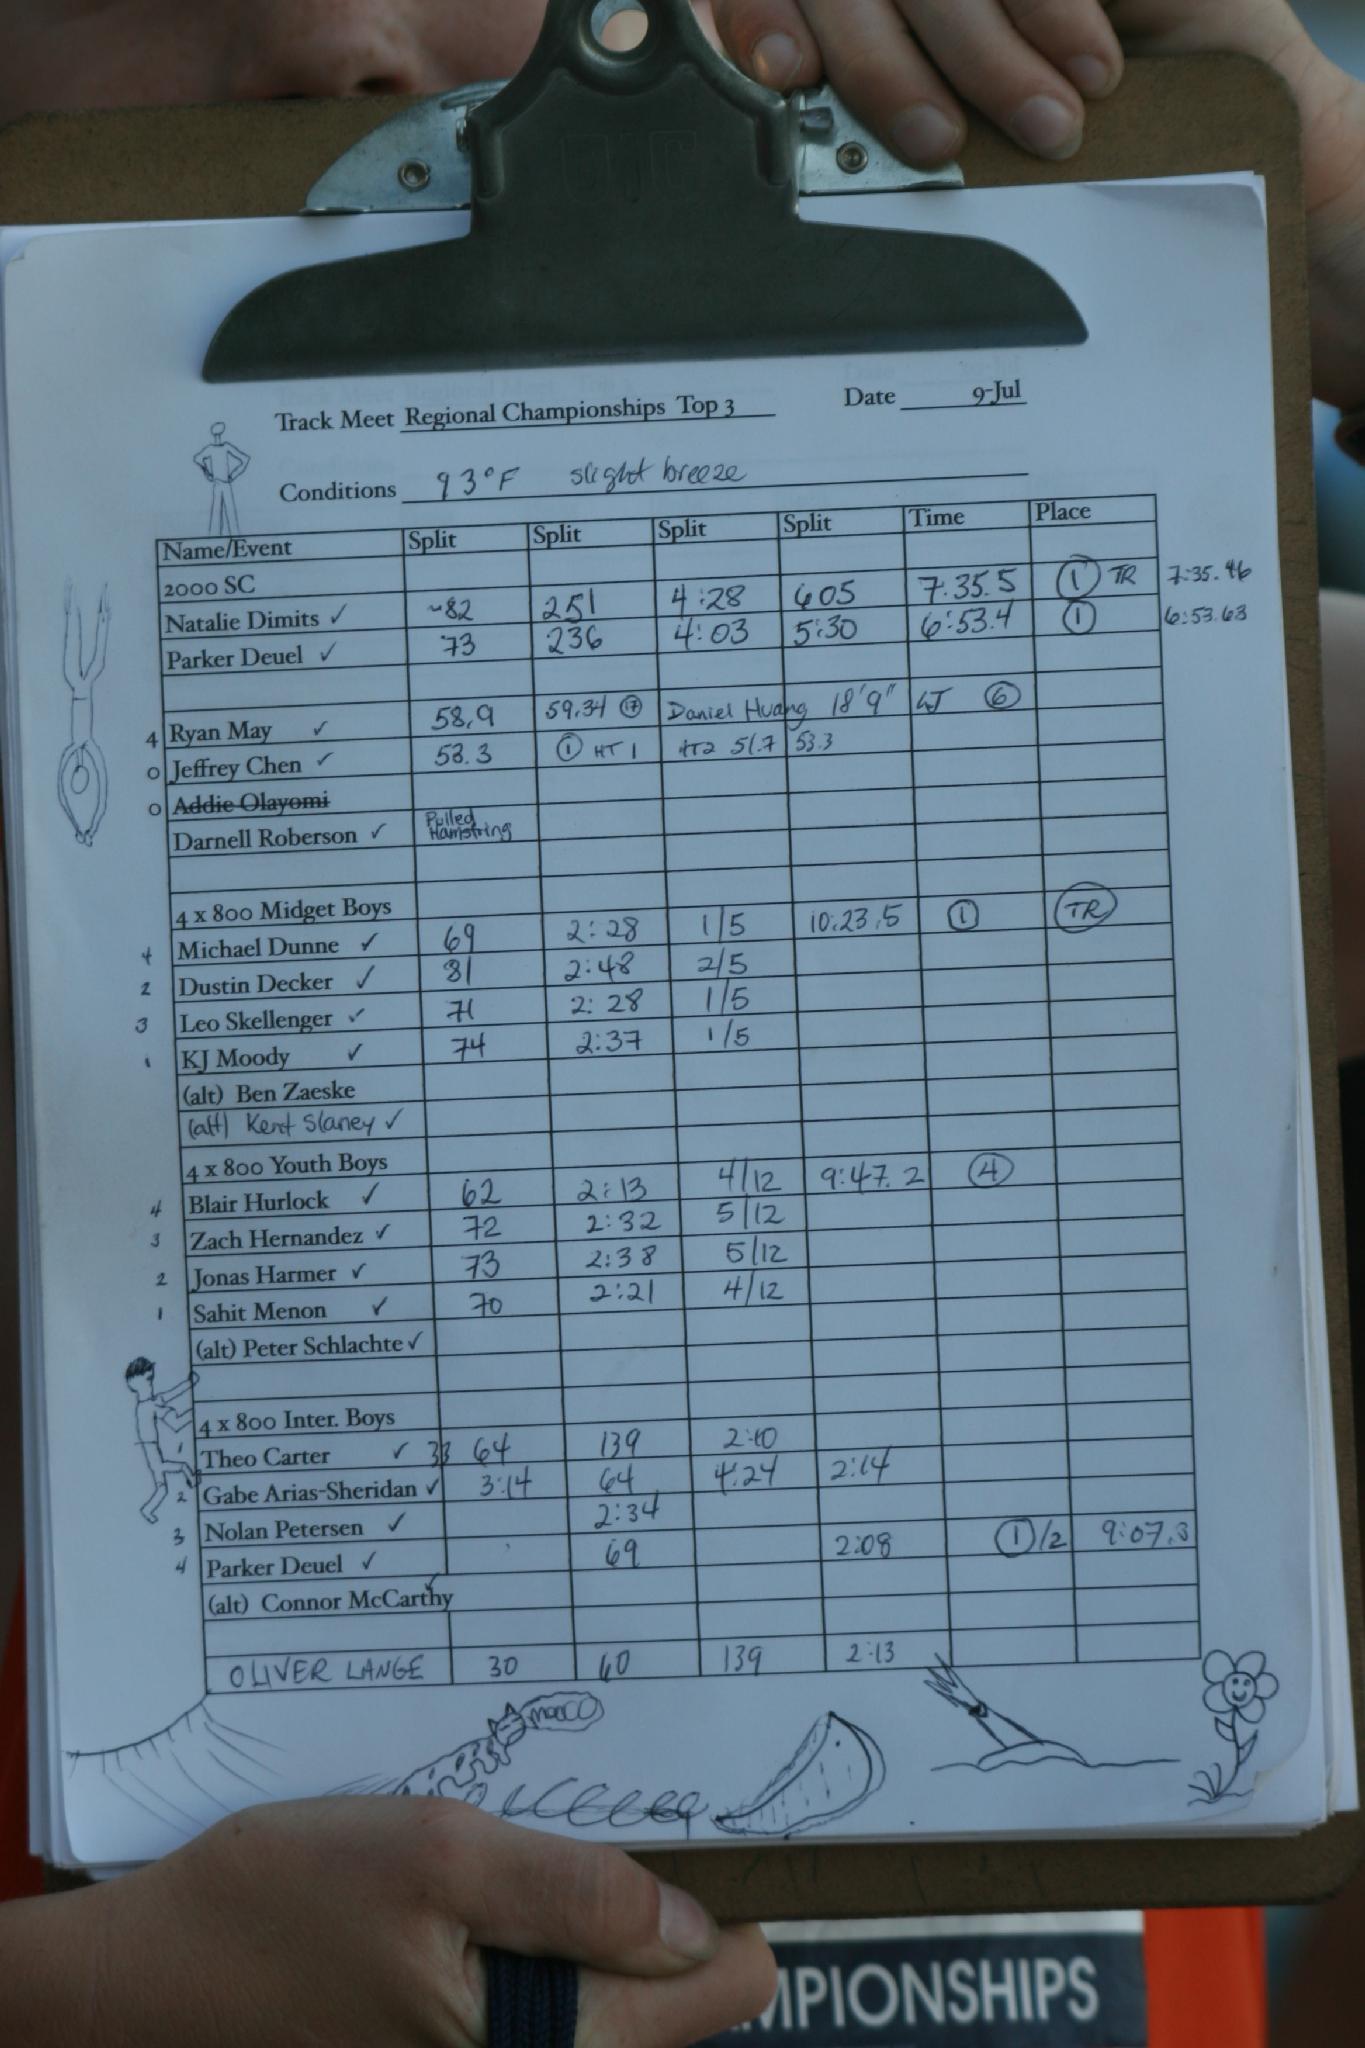 Track Meet Regional Championships Top 3 Date 9-Jul
Conditions 93°F slight breeze
Name/Event Split Split Split Split Time Place
2000 SC
Natalie Dimits ✓ ~82 251 4:28 605 7:35.5 1 TR 7:35.46
Parker Deuel ✓ 73 236 4:03 5:30 6:53.4 1 6:53.63
4 Ryan May ✓ 58.9 59.34 17 Daniel Huang 18'9" LJ 6
0 Jeffrey Chen ✓ 53.3 1 HT 1 HT2 51.7 53.3
0 Addie Olayomi
Darnell Roberson ✓ Pulled Hamstring
4 x 800 Midget Boys
4 Michael Dunne ✓ 69 2:28 1/5 10:23.5 1 TR
2 Dustin Decker ✓ 81 2:48 2/5
3 Leo Skellenger ✓ 71 2:28 1/5
1 KJ Moody ✓ 74 2:37 1/5
(alt) Ben Zaeske
(alt) Kent Slaney ✓
4 x 800 Youth Boys
4 Blair Hurlock ✓ 62 2:13 4/12 9:47.2 4
3 Zach Hernandez ✓ 72 2:32 5/12
2 Jonas Harmer ✓ 73 2:38 5/12
1 Sahit Menon ✓ 70 2:21 4/12
(alt) Peter Schlachte ✓
4 x 800 Inter. Boys
1 Theo Carter ✓ 33 64 139 2:10
2 Gabe Arias-Sheridan ✓ 3:14 64 4:24 2:14
3 Nolan Petersen ✓ 2:34
4 Parker Deuel ✓ 69 2:08 1/2 9:07.3
(alt) Connor McCarthy ✓
OLIVER LANGE 30 60 139 2:13
MPIONSHIPS